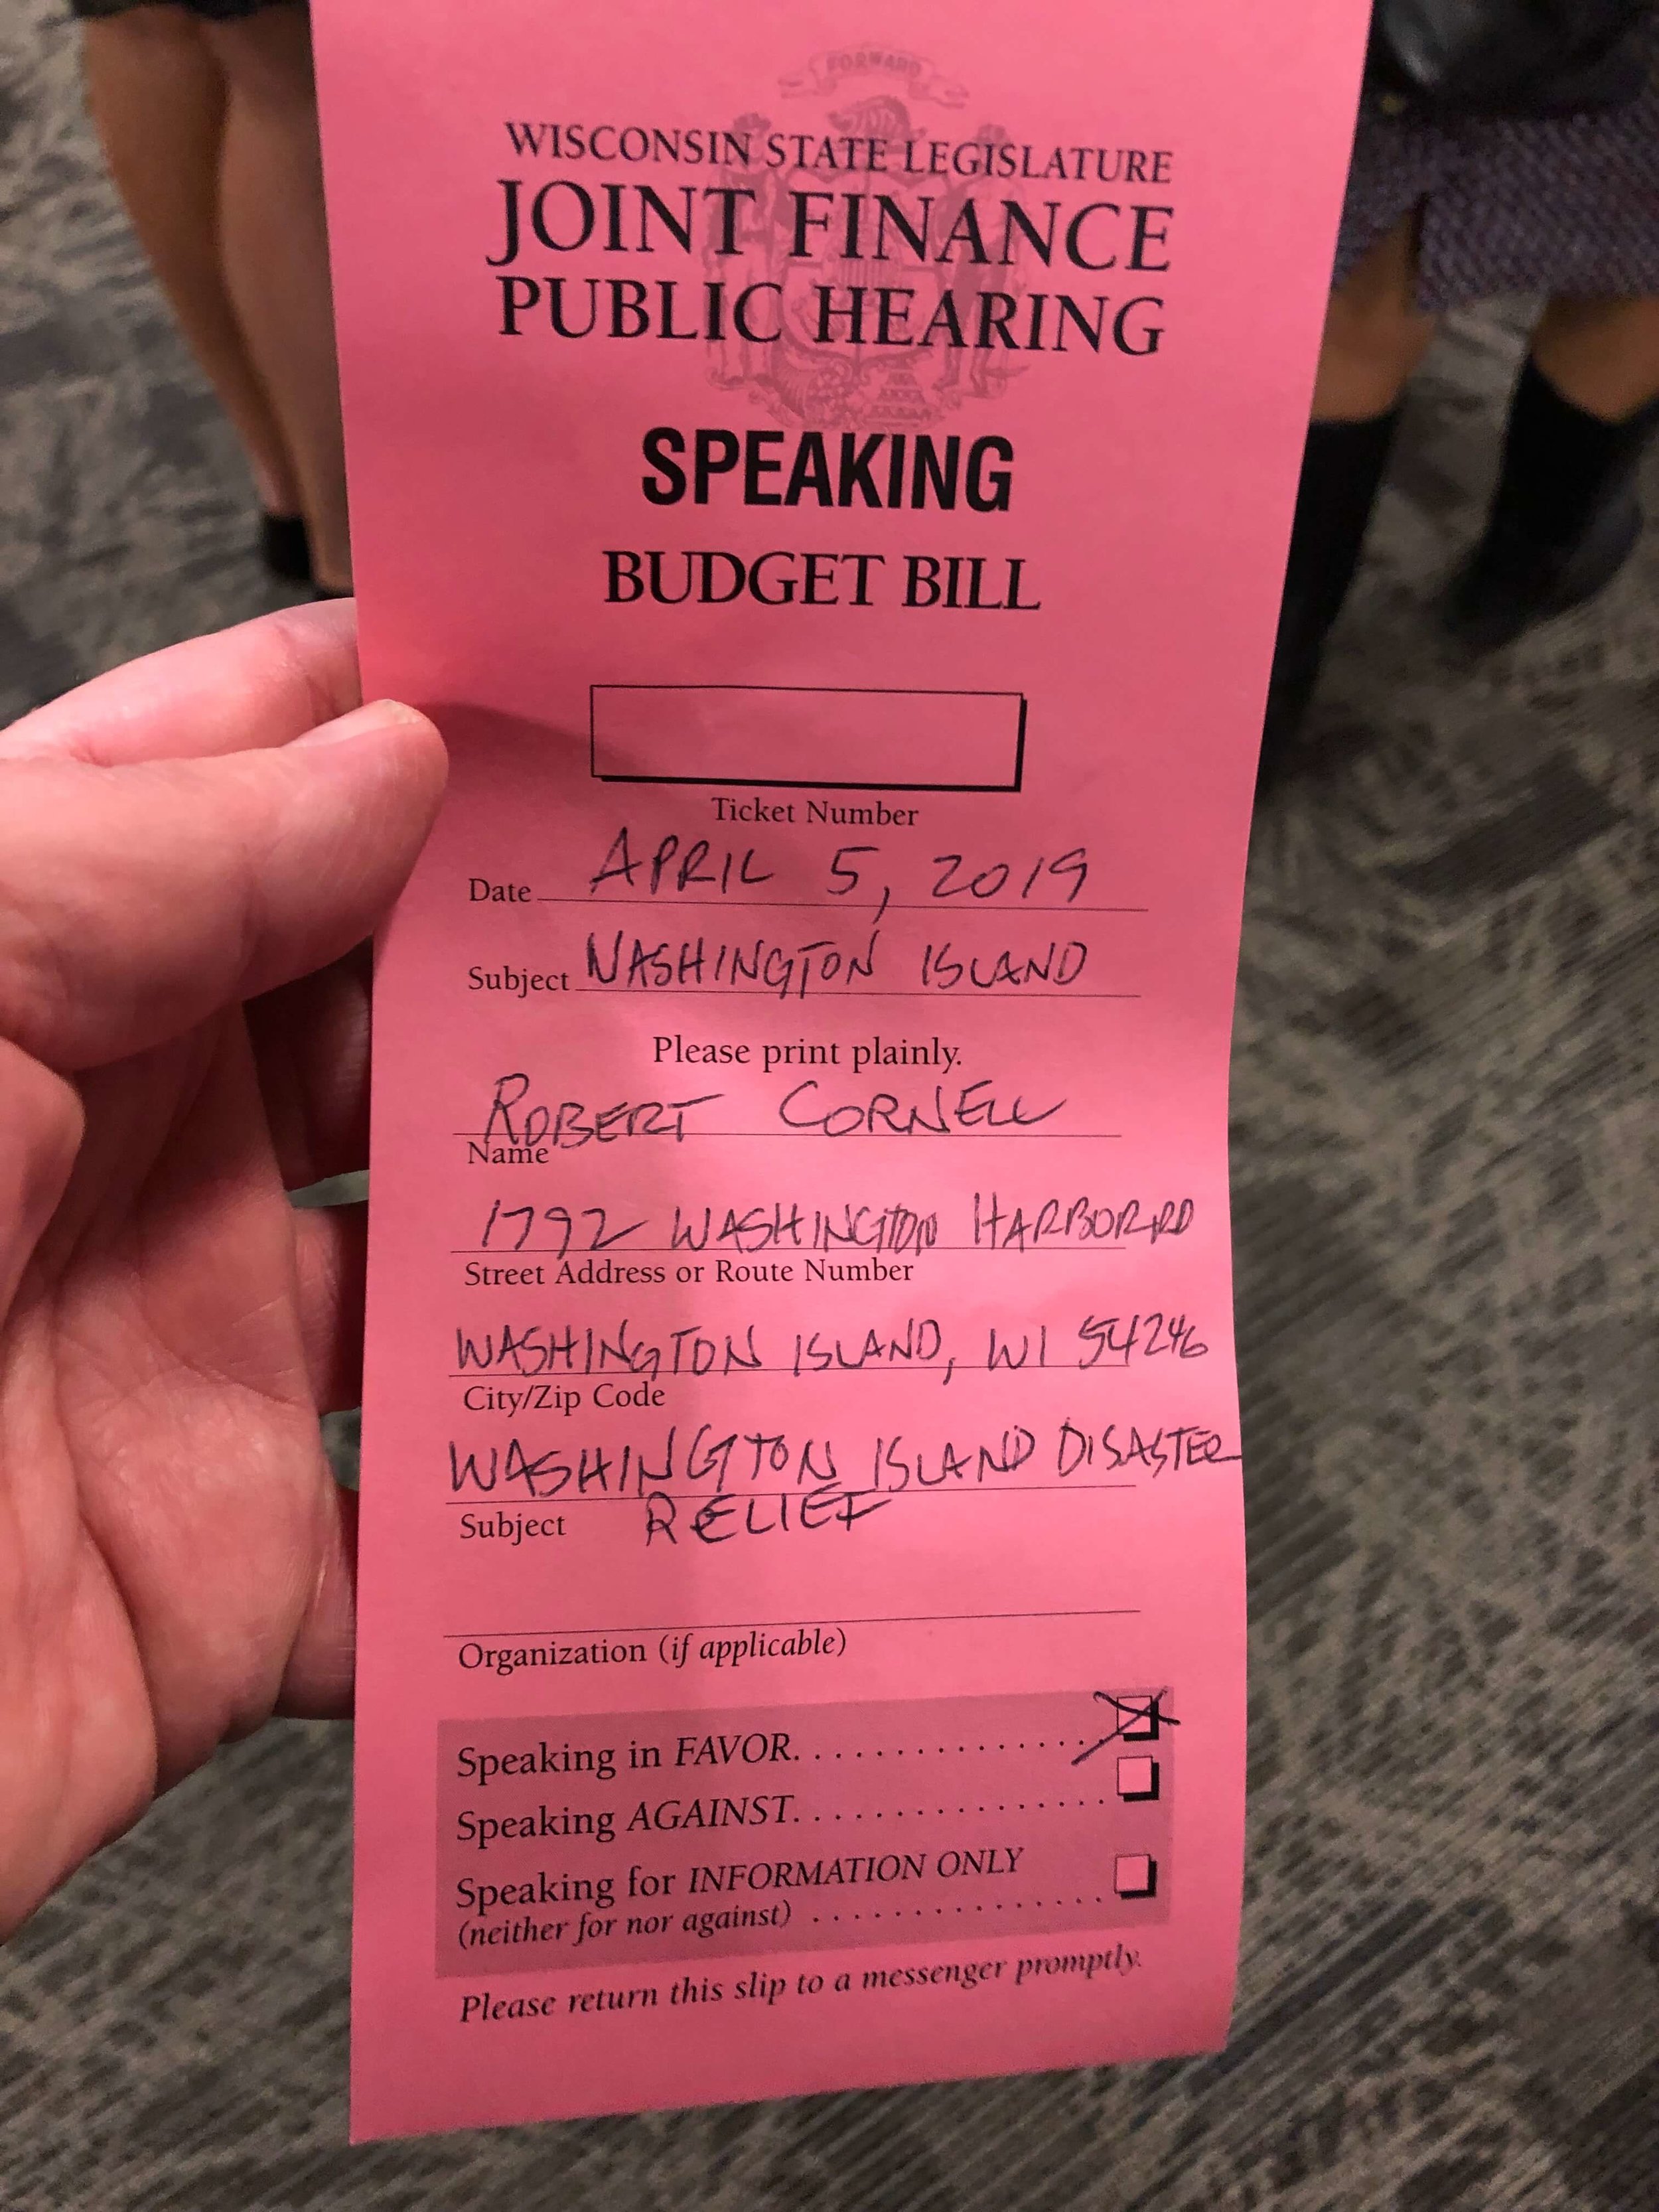 FORWARD
WISCONSIN STATE LEGISLATURE
JOINT FINANCE
PUBLIC HEARING
SPEAKING
BUDGET BILL
Ticket Number
Date APRIL 5, 2019
Subject WASHINGTON ISLAND
Please print plainly.
ROBERT CORNELL
Name
1792 WASHINGTON HARBOR RD
Street Address or Route Number
WASHINGTON ISLAND, WI 54246
City/Zip Code
WASHINGTON ISLAND DISASTER
Subject RELIEF
Organization (if applicable)
Speaking in FAVOR. . . . . . . . . . . . . . . .
Speaking AGAINST. . . . . . . . . . . . . . . .
Speaking for INFORMATION ONLY
(neither for nor against) . . . . . . . . . . . . . . .
Please return this slip to a messenger promptly.